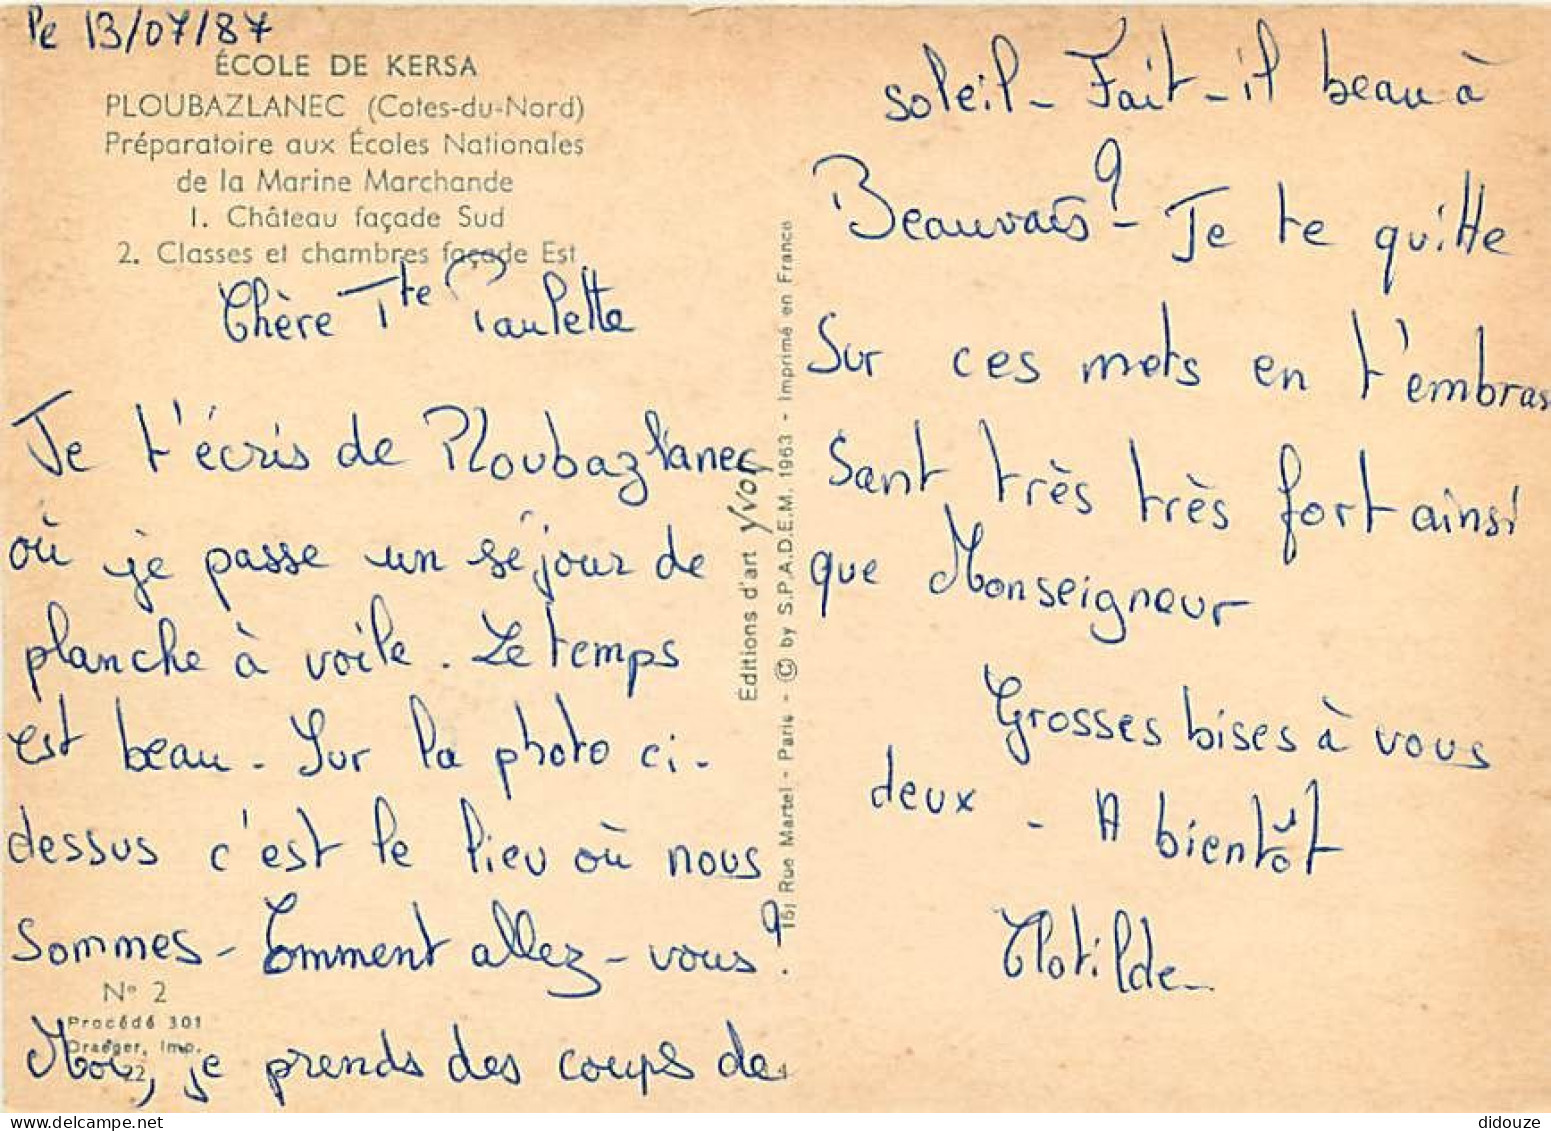 Le 13/07/87
ÉCOLE DE KERSA
PLOUBAZLANEC (Cotes-du-Nord)
Préparatoire aux Écoles Nationales
de la Marine Marchande
1. Château façade Sud
2. Classes et chambres façade Est
Chère Tte Paulette
Je t'écris de Ploubazlanec
où je passe un séjour de
planche à voile. Le temps
est beau - Sur la photo ci-
dessus c'est le lieu où nous
sommes - Comment allez-vous?
Moi, je prends des coups de
N° 2
Procédé 301
Draeger, Imp.
22
Éditions d'art Yvon
15, Rue Martel - Paris - © by S.P.A.D.E.M. 1963 - Imprimé en France
soleil - Fait-il beau à
Beauvais? - Je te quitte
sur ces mots en t'embras
sant très très fort ainsi
que Monseigneur
Grosses bises à vous
deux - A bientôt
Clotilde
didouze